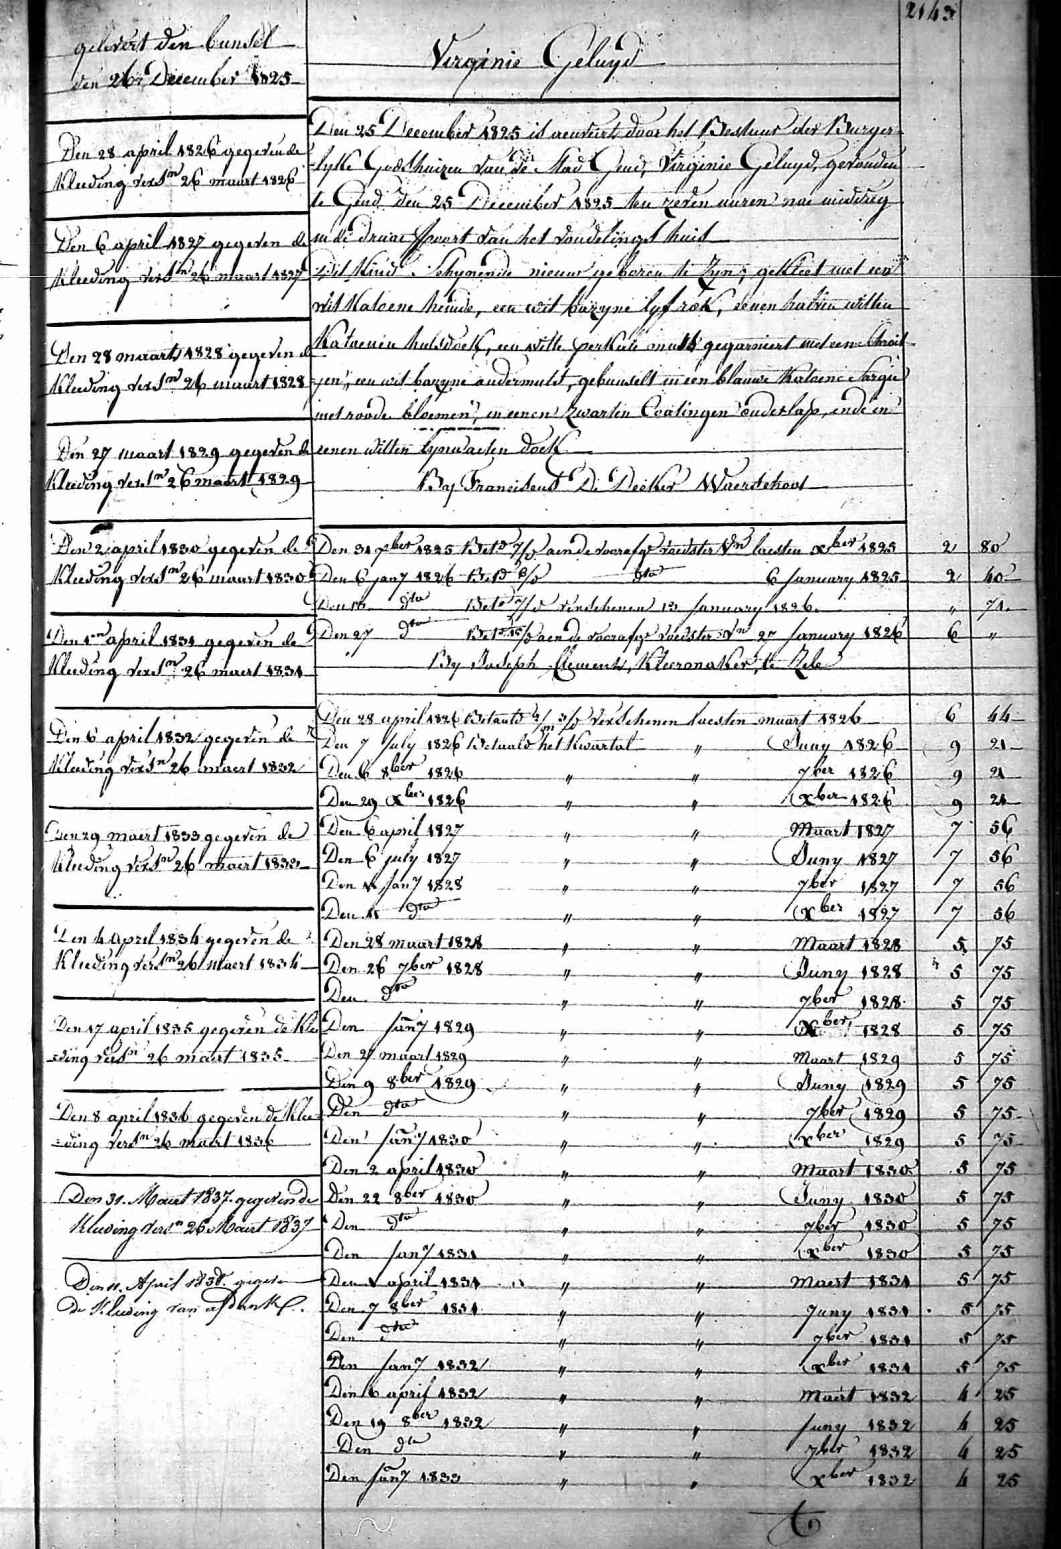 2143
Virginie Geluyd
gelevert den bunsel
den 26 December 1825
Den 28 april 1826 gegeven de
Kleeding vers.en 26 maart 1826
Den 6 april 1827 gegeven de
Kleeding vers.en 26 maart 1827
Den 28 maart 1828 gegeven de
Kleeding vers.en 26 maart 1828
Den 27 maart 1829 gegeven de
Kleeding vers.en 26 maart 1829
Den 2 april 1830 gegeven de
Kleeding vers.en 26 maart 1830
Den 1en april 1831 gegeven de
Kleeding vers.en 26 maert 1831
Den 6 april 1832 gegeven de
Kleeding vers.en 26 maert 1832
Den 29 maert 1833 gegeven de
Kleeding vers.en 26 maert 1833
Den 4 april 1834 gegeven de
Kleeding vers.en 26 maert 1834
Den 17 april 1835 gegeven de Klee
=ding vers.en 26 maart 1835
Den 8 april 1836 gegeven de Klee
=ding vers.en 26 maart 1836
Den 31 Maart 1837 gegeven de
Kleeding vers.en 26 Maart 1837
Den 11 April 1838 gegeven
de Kleeding van afdank
Den 25 December 1825 is aenveert door het Bestuur der Burger-
lyke Godshuizen van de Stad Gend, Virginie Geluyd, gevonden
te Gend den 25 December 1825 ten zeven uuren nae middag
in de draai poort van het vondelingshuis
Dit Kind schynende nieuw geboren te zyn, gekleet met een
wit Katoene hemde, een wit bazyne lyfrok, eenen halven witten
Katoenen halsdoek, een witte perkale muts gegarniert met een
een wit bazyne ondermuts, gebunselt in een blauwe Katoene Sargie
met roode bloemen, in eenen zwarten Coatingen onderlap, ende in
eenen witten lynwaeten doek
By Francisens De Decker Waerschoot
Den 31 xber 1825 Betd 7/5 aen de voorafge voedster vn laesten xber 1825 2 80
Den 6 jany 1826 Betd 6/5 dta 6 january 1825 2 40
Den 16 dta Betd verschenen 13 january 1826 " 71
Den 27 dta Betd aen de voorafge voedster vn 27 january 1826 6 "
By Joseph Clement, Kleermaker, te Zele
Den 28 april 1826 Betaald verschenen laesten maart 1826 6 44
Den 7 july 1826 Betaald het Kwartal " Juny 1826 9 21
Den 6 8ber 1826 " " 7ber 1826 9 21
Den 29 xber 1826 " " xber 1826 9 21
Den 6 april 1827 " " Maart 1827 7 56
Den 6 july 1827 " " Juny 1827 7 56
Den 11 jany 1828 " " 7ber 1827 7 56
Den 11 dta " " xber 1827 7 56
Den 28 maart 1828 " " Maart 1828 5 75
Den 26 7ber 1828 " " Juny 1828 5 75
Den dta " " 7ber 1828 5 75
Den jany 1829 " " xber 1828 5 75
Den 27 maart 1829 " " Maart 1829 5 75
Den 9 8ber 1829 " " Juny 1829 5 75
Den dta " " 7ber 1829 5 75
Den jany 1830 " " xber 1829 5 75
Den 2 april 1830 " " Maart 1830 5 75
Den 22 8ber 1830 " " Juny 1830 5 75
Den dta " " 7ber 1830 5 75
Den jany 1831 " " xber 1830 5 75
Den 1 april 1831 " " Maert 1831 5 75
Den 7 8ber 1831 " " Juny 1831 5 75
Den dta " " 7ber 1831 5 75
Den jany 1832 " " xber 1831 5 75
Den 6 april 1832 " " Maart 1832 4 25
Den 19 8ber 1832 " " juny 1832 4 25
Den dta " " 7ber 1832 4 25
Den jany 1833 " " xber 1832 4 25